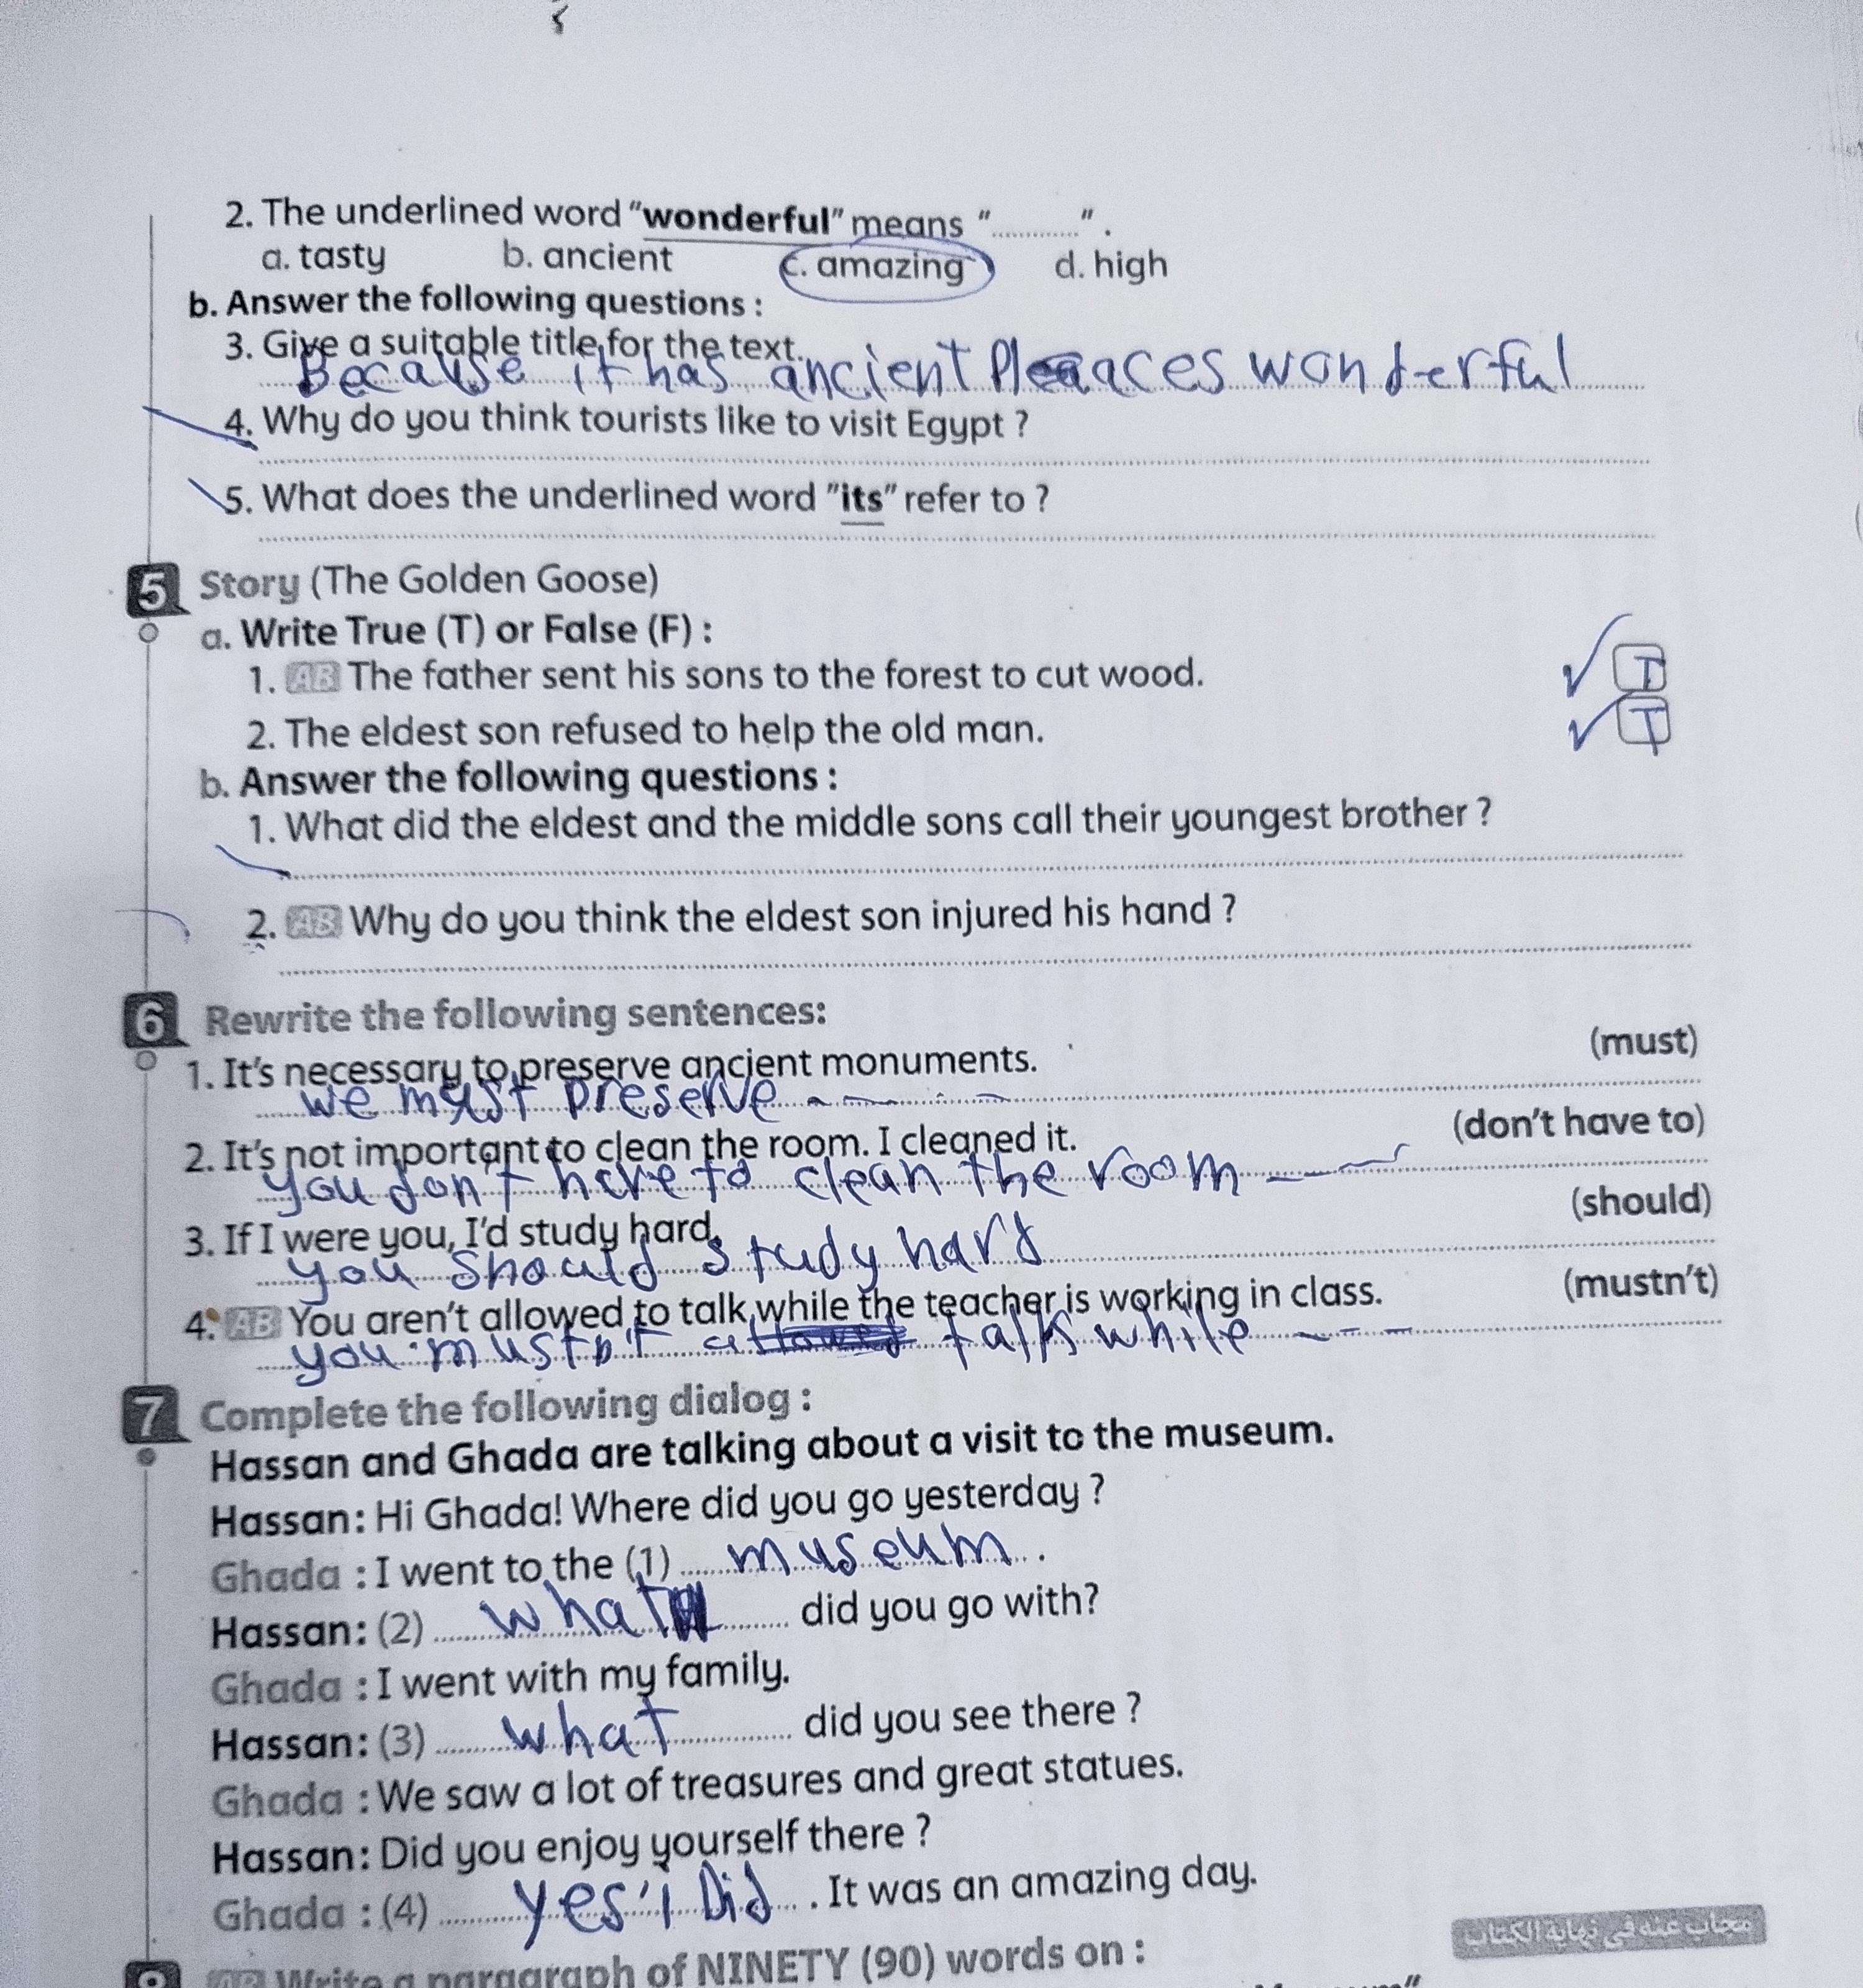 2. The underlined word "wonderful" means "............" .
a. tasty b. ancient c. amazing d. high
b. Answer the following questions :
3. Give a suitable title for the text.
Because it has ancient Pleaces wonderful
4. Why do you think tourists like to visit Egypt ?
5. What does the underlined word "its" refer to ?
5 Story (The Golden Goose)
a. Write True (T) or False (F) :
1. AB The father sent his sons to the forest to cut wood. T
2. The eldest son refused to help the old man. T
b. Answer the following questions :
1. What did the eldest and the middle sons call their youngest brother ?
2. AB Why do you think the eldest son injured his hand ?
6 Rewrite the following sentences:
1. It's necessary to preserve ancient monuments. (must)
we must preserve
2. It's not important to clean the room. I cleaned it. (don't have to)
you don't have to clean the room
3. If I were you, I'd study hard. (should)
you should study hard
4. AB You aren't allowed to talk while the teacher is working in class. (mustn't)
you mustn't talk while
7 Complete the following dialog :
Hassan and Ghada are talking about a visit to the museum.
Hassan: Hi Ghada! Where did you go yesterday ?
Ghada : I went to the (1) museum .
Hassan: (2) what did you go with?
Ghada : I went with my family.
Hassan: (3) what did you see there ?
Ghada : We saw a lot of treasures and great statues.
Hassan: Did you enjoy yourself there ?
Ghada : (4) yes'i Did . It was an amazing day.
مجاب عنه في نهاية الكتاب
8 AB Write a paragraph of NINETY (90) words on :